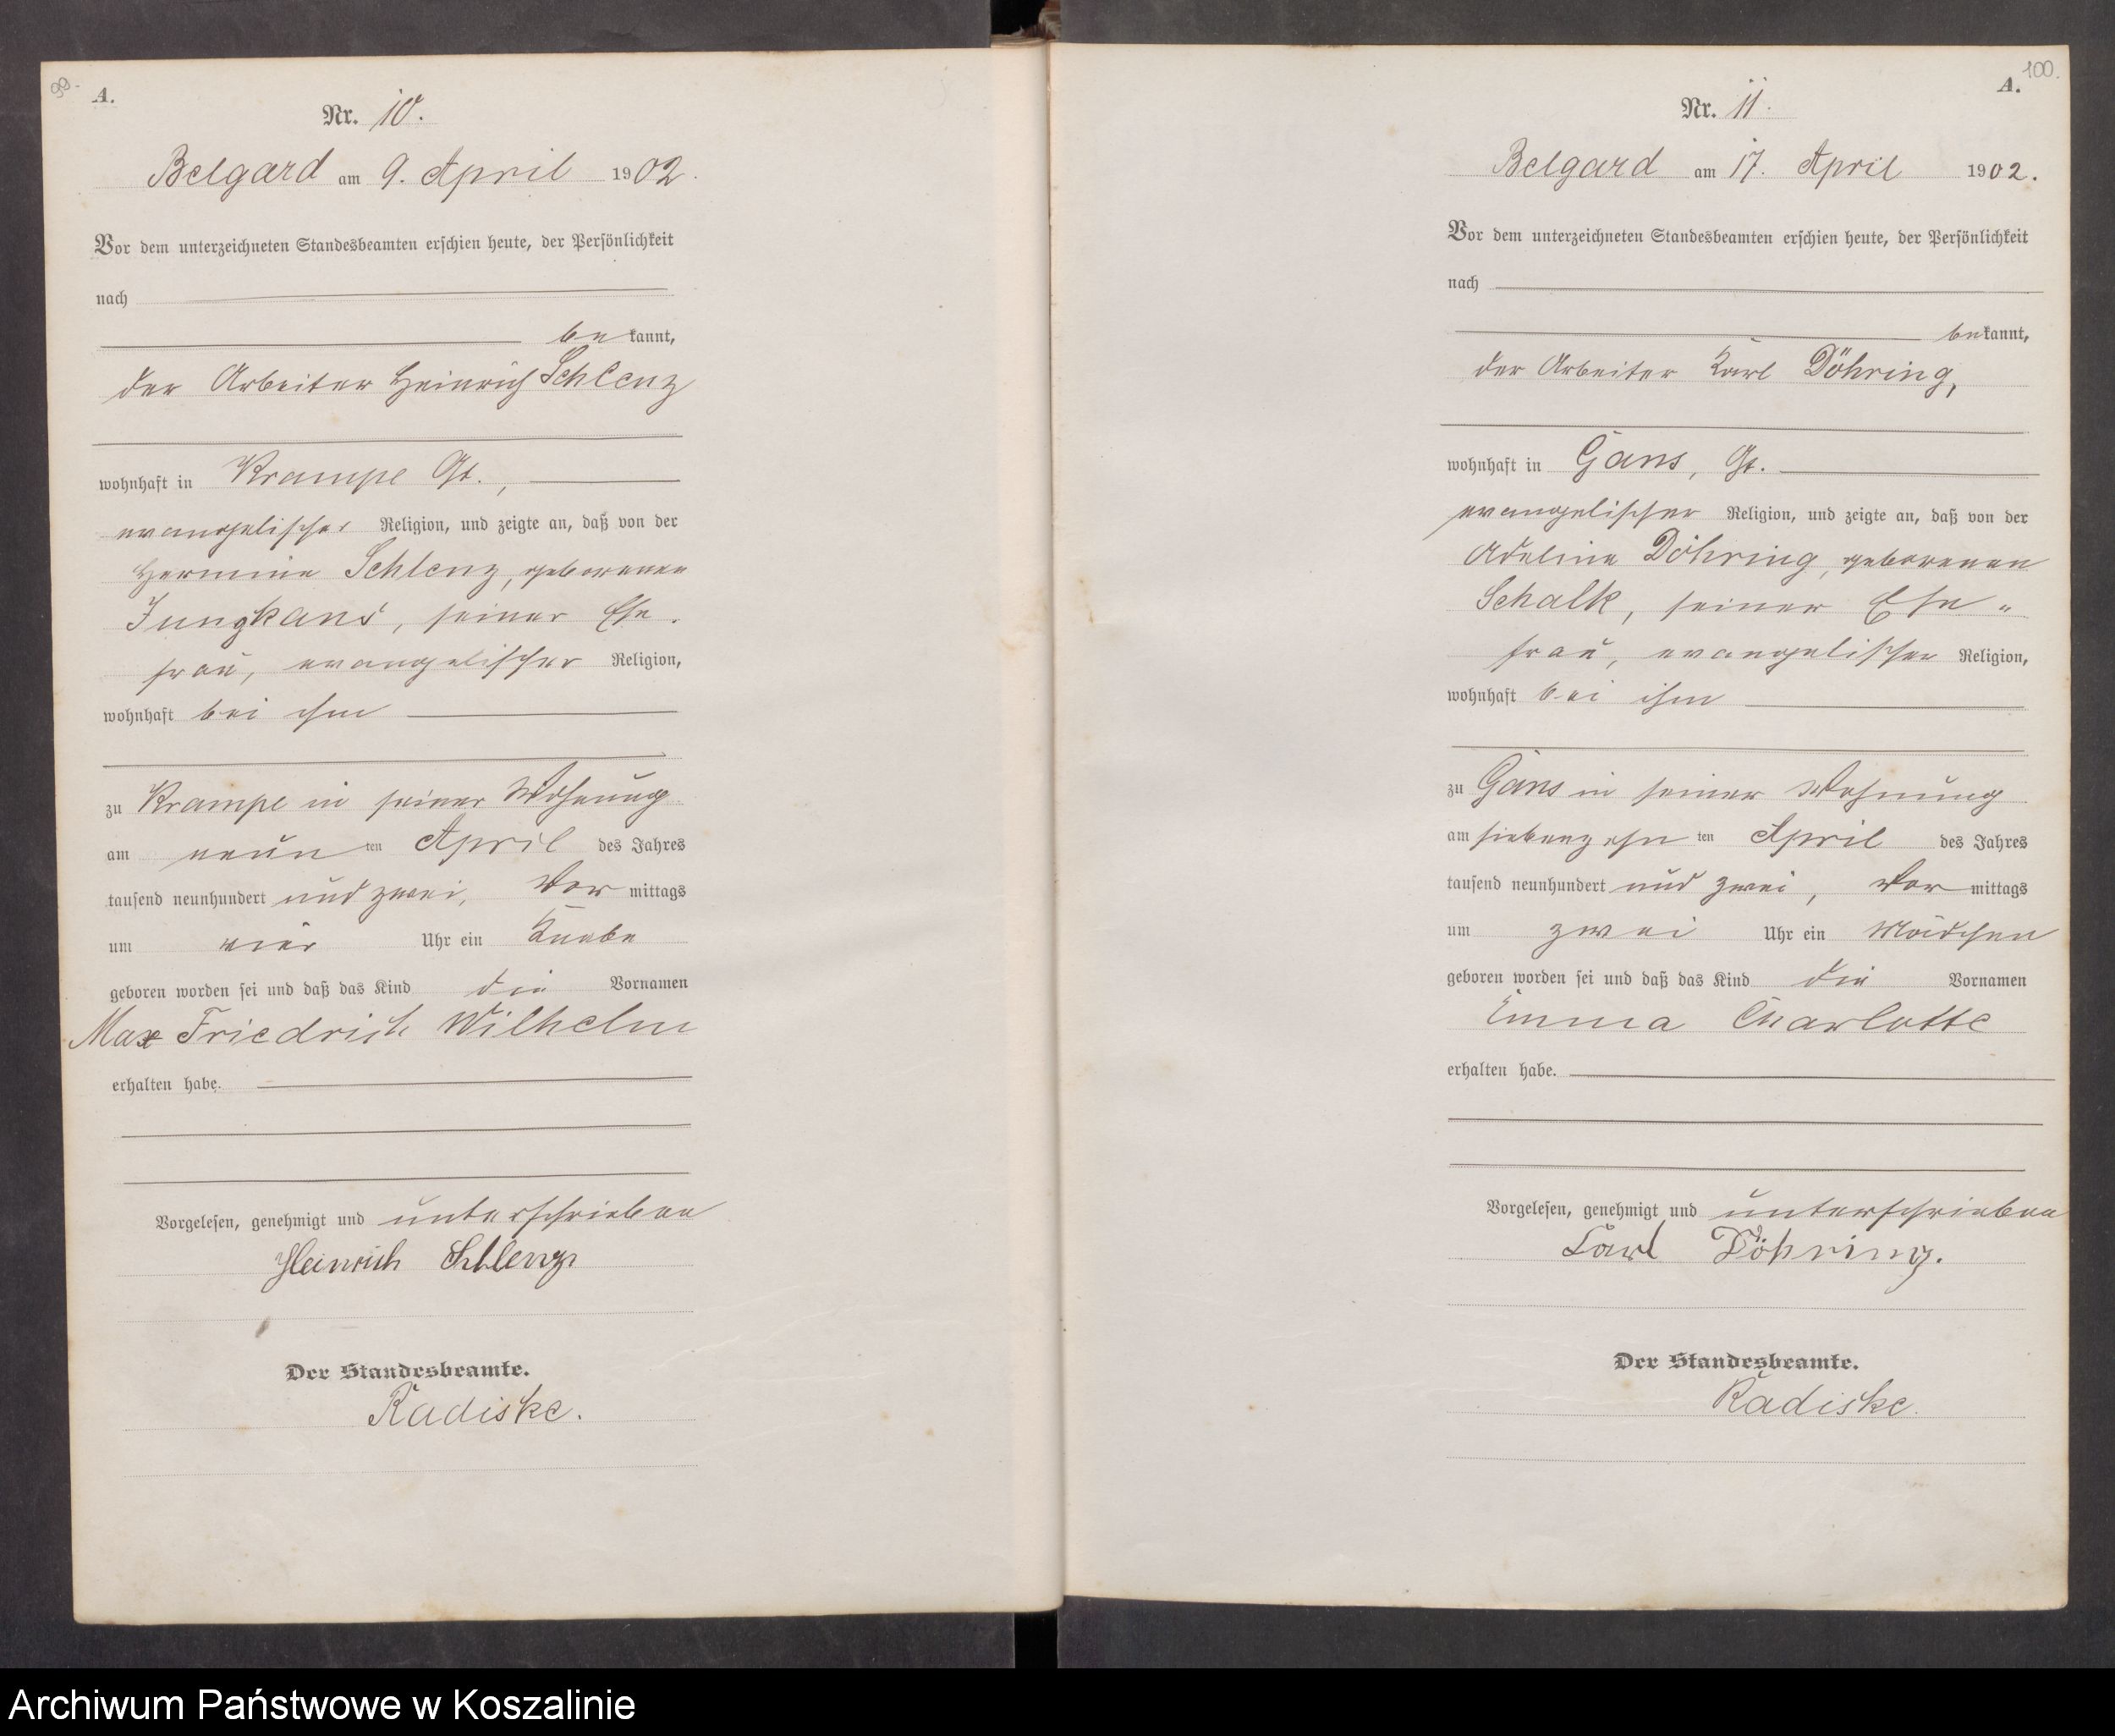 99.
A.
Nr. 10.
Belgard am 9. April 1902.
Vor dem unterzeichneten Standesbeamten erschien heute, der Persönlichkeit
nach
bekannt,
der Arbeiter Heinrich Schlenz
wohnhaft in Krampe Gt.,
evangelischer Religion, und zeigte an, daß von der
Hermine Schlenz, geborenen
Jungkans, seiner Ehe-
frau, evangelischer Religion,
wohnhaft bei ihm
zu Krampe in seiner Wohnung
am neunten April des Jahres
tausend neunhundert und zwei, Vormittags
um vier Uhr ein Knabe
geboren worden sei und daß das Kind die Vornamen
Max Friedrich Wilhelm
erhalten habe.
Vorgelesen, genehmigt und unterschrieben
Heinrich Schlenz
Der Standesbeamte.
Radiske.
100.
A.
Nr. 11.
Belgard am 17. April 1902.
Vor dem unterzeichneten Standesbeamten erschien heute, der Persönlichkeit
nach
bekannt,
der Arbeiter Karl Döhring,
wohnhaft in Gans, Gt.
evangelischer Religion, und zeigte an, daß von der
Adeline Döhring, geborenen
Schalk, seiner Ehe„
frau, evangelischer Religion,
wohnhaft bei ihm
zu Gans in seiner Wohnung
am siebenzehnten April des Jahres
tausend neunhundert und zwei, Vormittags
um zwei Uhr ein Mädchen
geboren worden sei und daß das Kind die Vornamen
Emma Charlotte
erhalten habe.
Vorgelesen, genehmigt und unterschrieben
Karl Döhring.
Der Standesbeamte.
Radiske.
Archiwum Państwowe w Koszalinie